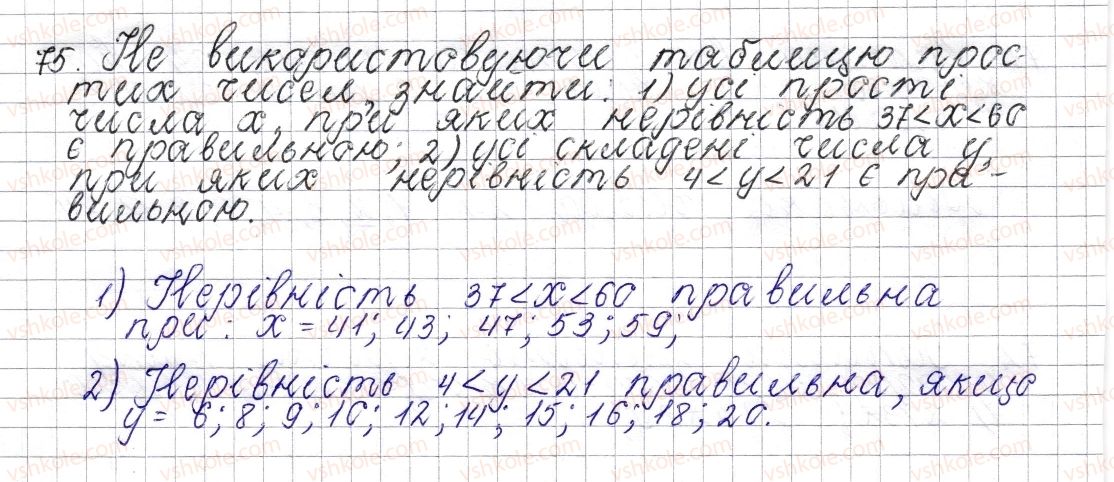 75. Не використовуючи таблицю прос-
тих чисел, знайти: 1) усі прості
числа x, при яких нерівність 37<x<60
є правильною; 2) усі складені числа y,
при яких нерівність 4<y<21 є пра-
вильною.
1) Нерівність 37<x<60 правильна
при: x = 41; 43; 47; 53; 59;
2) Нерівність 4<y<21 правильна, якщо
y = 6; 8; 9; 10; 12; 14; 15; 16; 18; 20.